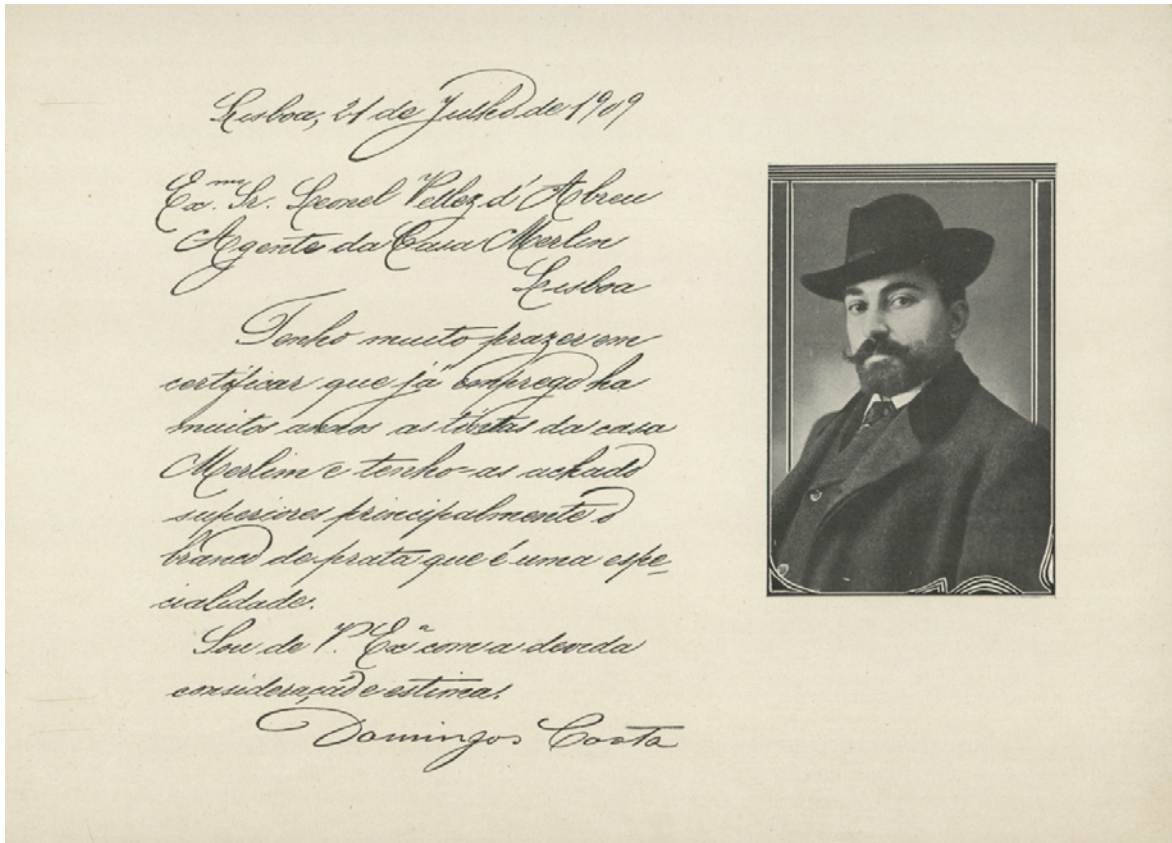 Lisboa, 21 de Julho de 1909
Ex.mo Sr. Leonel Vellez d'Abreu
Agente da Casa Merlin
Lisboa
Tenho muito prazer em
certificar que já emprego ha
muitos annos as tintas da casa
Merlim e tenho-as achado
superiores principalmente o
branco de prata que é uma espe-
cialidade.
Sou de V. Exa com a devida
consideração e estima.
Domingos Costa